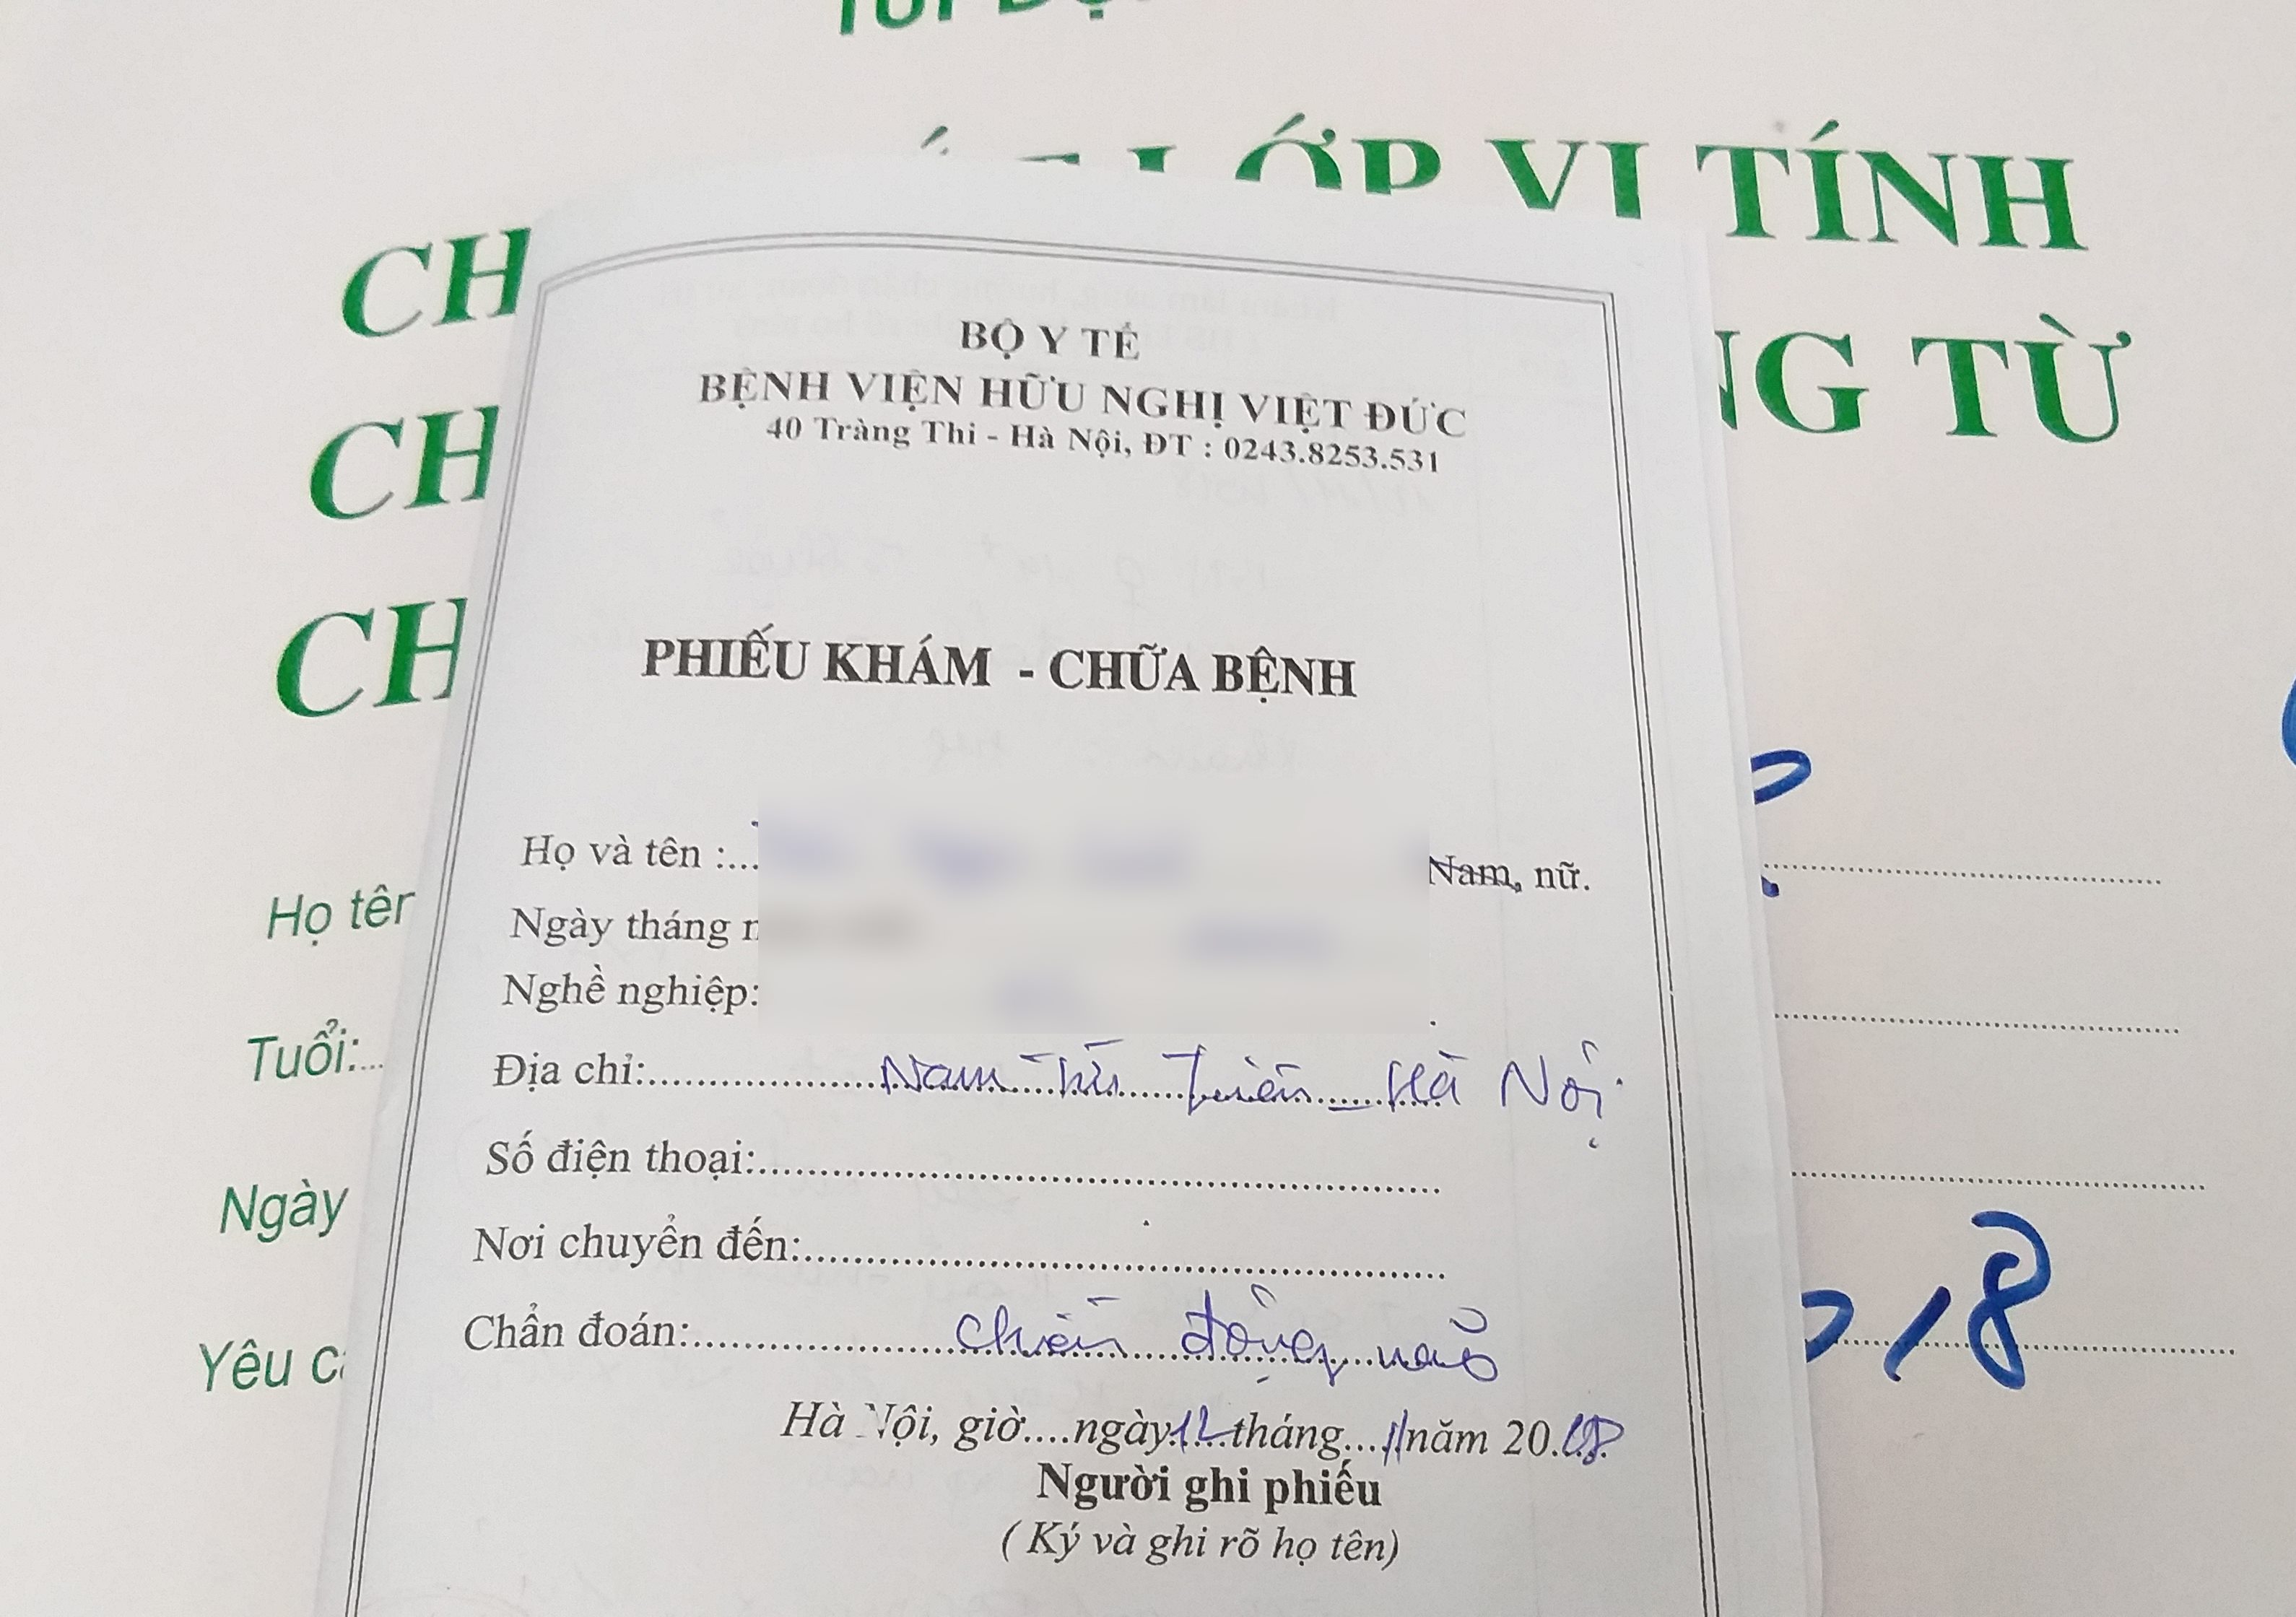 LỚP VI TÍNH
CH
NG TỪ
CH
CH
BỘ Y TẾ
BỆNH VIỆN HỮU NGHỊ VIỆT ĐỨC
40 Tràng Thi - Hà Nội, ĐT : 0243.8253.531
PHIẾU KHÁM - CHỮA BỆNH
Họ và tên :... Nam, nữ.
Ngày tháng n
Nghề nghiệp:
Địa chỉ: Nam Từ Liêm - Hà Nội
Số điện thoại:
Nơi chuyển đến:
Chẩn đoán: Chấn động não
Hà Nội, giờ....ngày 12 tháng 11 năm 2018
Người ghi phiếu
( Ký và ghi rõ họ tên)
Họ tên
Tuổi:
Ngày
Yêu cầ
18